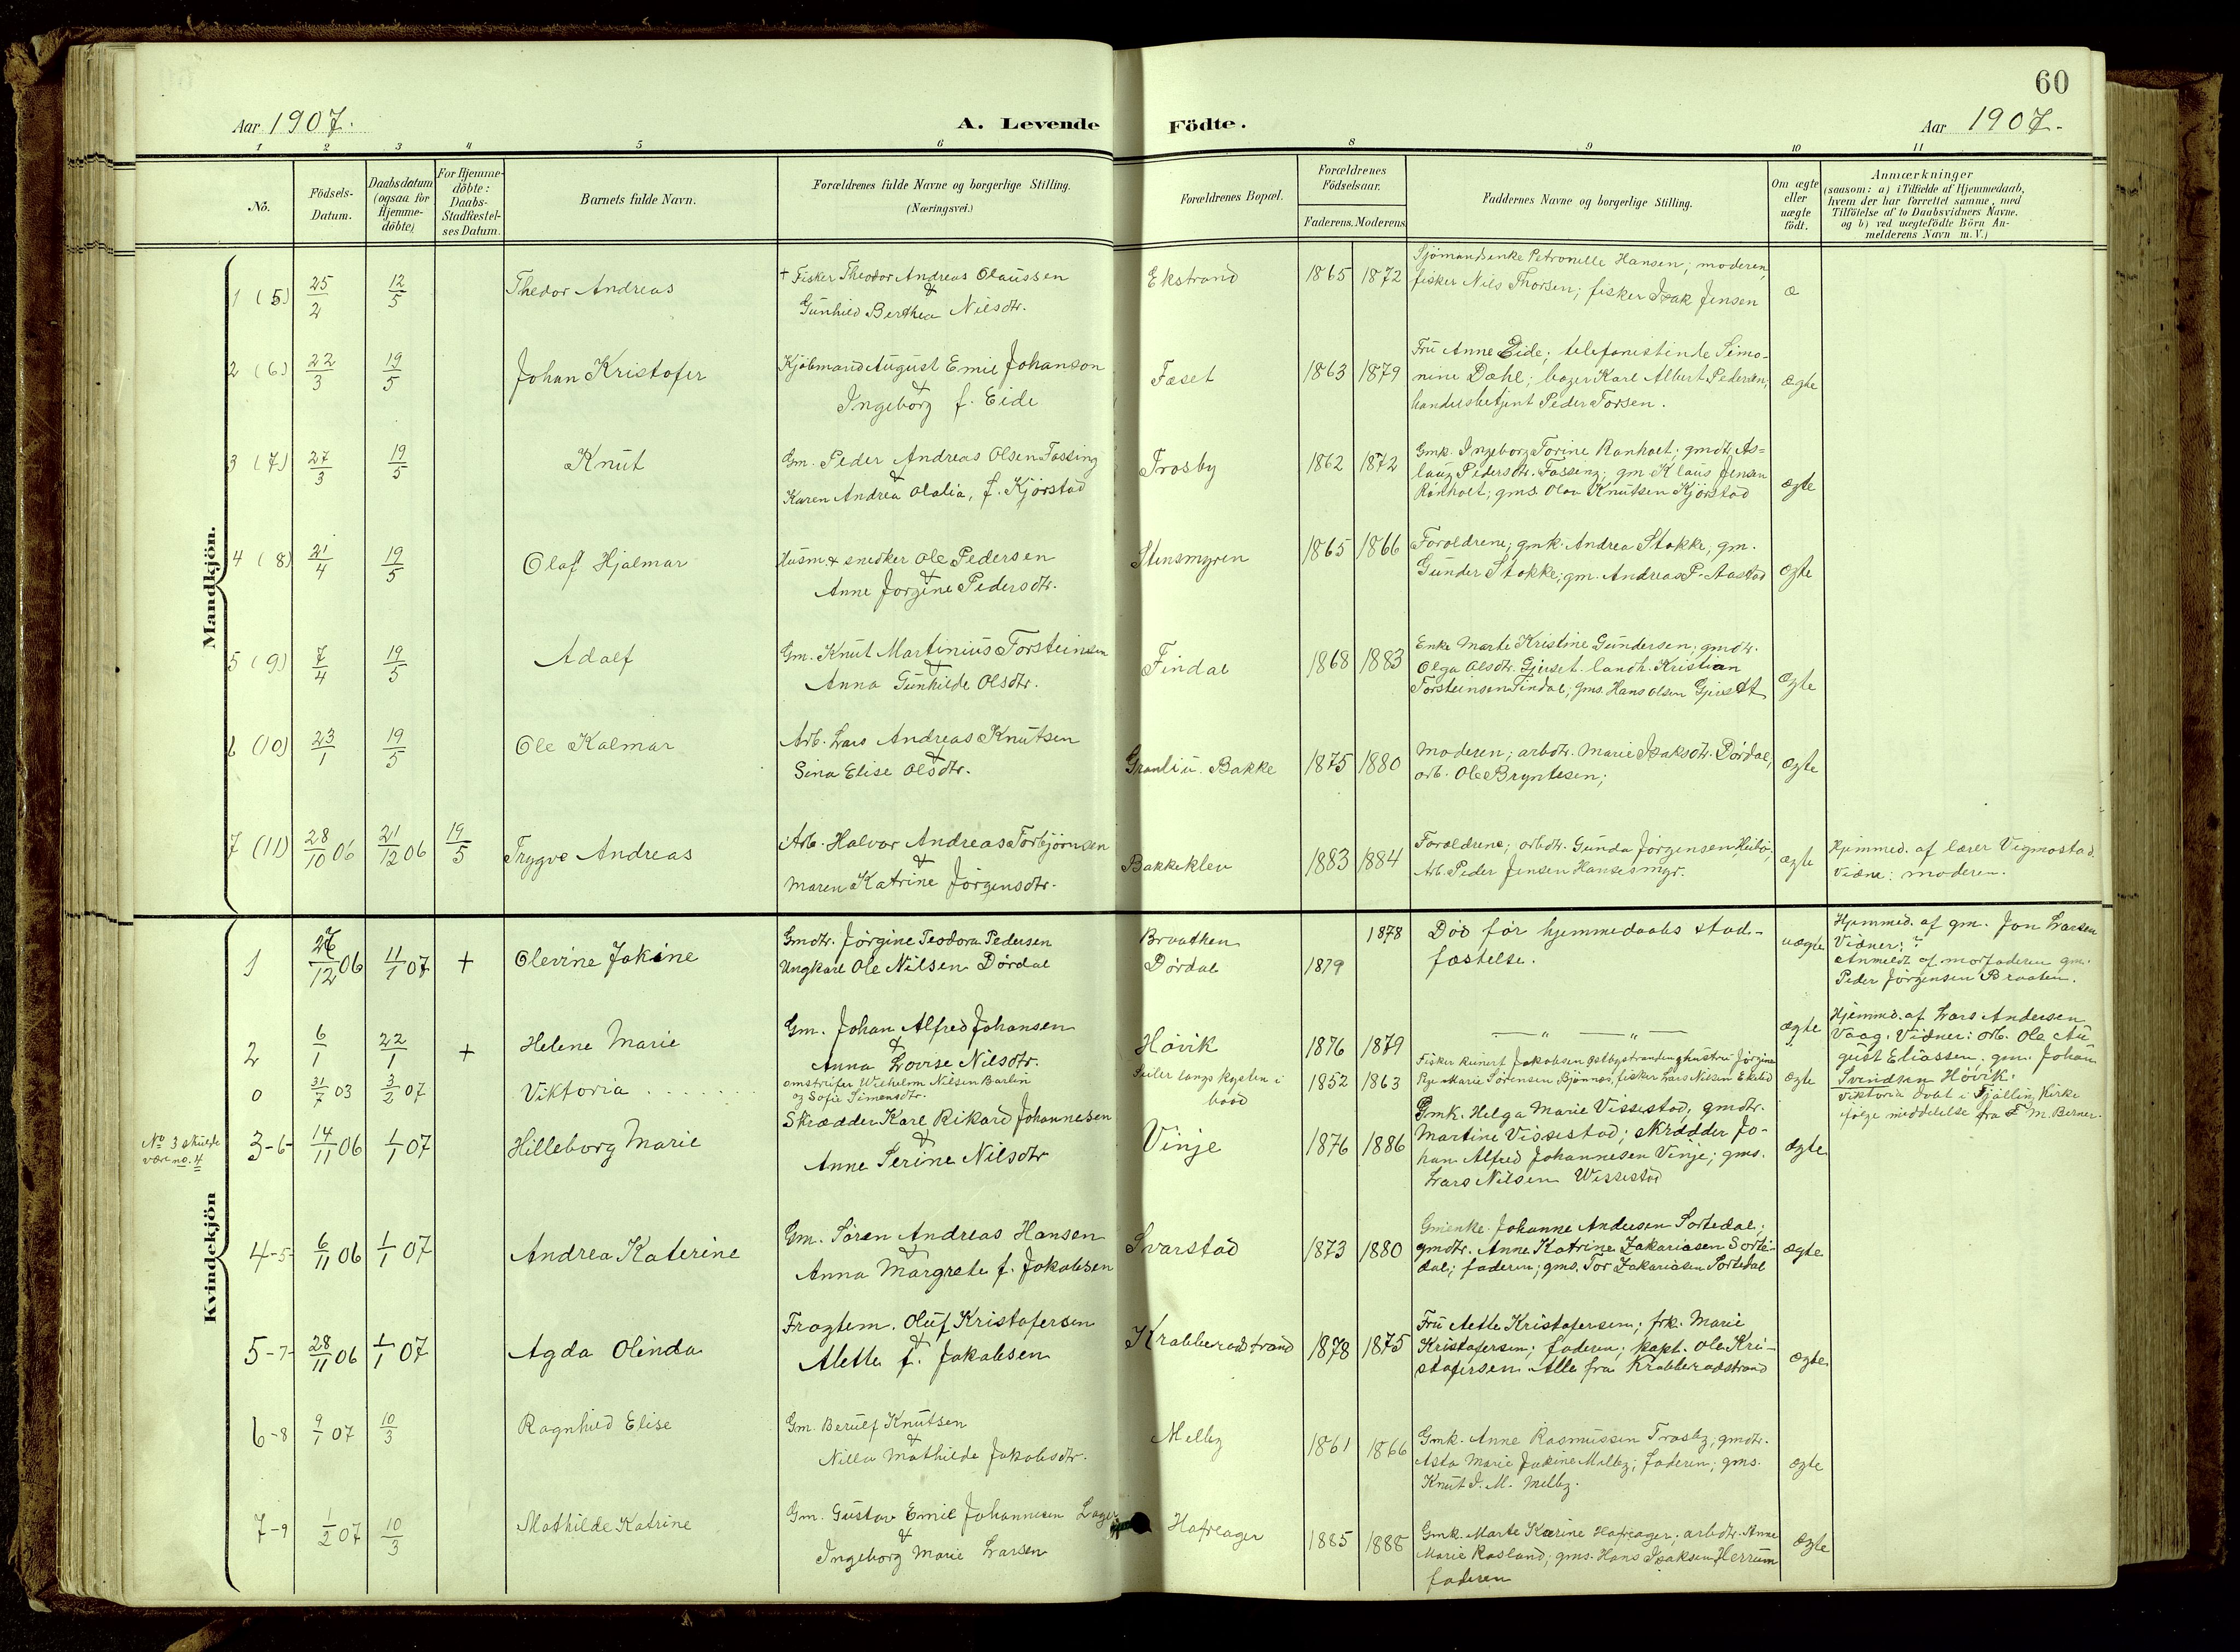 60
Aar 1907.
A. Levende Födte.
Aar 1907.
1 2 3 4 5 6 8 9 10 11
Nö.
Födsels-
Datum.
Daabsdatum
(ogsaa for
Hjemme-
döbte)
For Hjemme-
döbte:
Daabs-
Stadfæstel-
ses Datum.
Barnets fulde Navn.
Forældrenes fulde Navne og borgerlige Stilling.
(Næringsvei.)
Forældrenes Bopæl.
Forældrenes
Födselsaar.
Faderens. Moderens.
Faddernes Navne og borgerlige Stilling.
Om ægte
eller
uægte
födt.
Anmærkninger
(saasom: a) i Tilfælde af Hjemmedaab,
hvem der har forrettet samme, med
Tilföielse af to Daabsvidners Navne.
og b) ved uægtefödte Börn An-
melderens Navn m.V.)
Mandkjön.
1 (5) 25/2 12/5 Thedor Andreas
+ Fisker Theodor Andreas Olaussen
&
Gunhild Berthea Nilsdtr.
Ekstrand 1865 1872
Sjömandsenke Petronelle Hansen; moderen,
fisker Nils Thorsen; fisker Isak Jensen
æ
2 (6) 22/3 19/5 Johan Kristofer
Kjöbmand August Emil Johanson
&
Ingeborg f. Eide
Fæset 1863 1879
Fru Anne Eide; telefonistinde Simo-
nine Dahl; bager Karl Albert Pedersen,
handelsbetjent Peder Torsen.
ægte
3 (7) 27/3 19/5 Knut
Gm. Peder Andreas Olsen Fossing
&
Karen Andrea Olalia, f. Kjörstad
Trosby 1862 1872
Gmk. Ingeborg Torine Rønholt; gmdtr. As-
laug Pedersdtr. Fosseng; gm. Klaus Jensen
Rönholt; gms. Olav Knutsen Kjörstad
ægte
4 (8) 21/4 19/5 Olaf Hjalmar
Husm. & snedker Ole Pedersen
&
Anne Jorgine Pedersdtr.
Stensmyren 1865 1866
Foroldrene; gmk. Andrea Stokke, gm.
Gunder Stokke; gm. Andreas P. Aastad
ægte
5 (9) 7/4 19/5 Adolf
Gm. Knut Martinius Torsteinsen
&
Anna Gunhilde Olsdtr.
Findal 1868 1883
Enke Marte Kristine Gundersen; gmdtr.
Olga Olsdtr. Gjerset. landh. Kristian
Torsteinsen Findal; gms. Hans Olsen Gjerset
ægte
6 (10) 23/1 19/5 Ole Kalmar
Arb. Lars Andreas Knutsen
&
Sina Elise Olsdtr.
Granli u. Bakke 1875 1880
Moderen; arbdtr. Marie Isaksdtr. Dördal,
arb. Ole Bryntesen;
ægte
7 (11) 28/10 06 21/12 06 19/5 Trygve Andreas
Arb. Halvor Andreas Torbjörnsen
&
Maren Katrine Jörgensdtr.
Bakkeklev 1883 1884
Foroldrene; arbdtr. Gunda Jörgensen Heibö,
Arb. Peder Jensen Hansesmyr.
ægte
Hjemmed. af lærer Vigmostad.
Vidne: moderen.
Kvindekjön
1 26/12 06 11/1 07 + Olevine Jokine
Gmdtr. Jörgine Teodora Pedersen
Ungkarl Ole Nilsen Dördal
Braathen
Dördal
1879 1878
Död för hjemmedaabs stad-
fæstelse.
uægte
Hjemmed. af gm. Jon Larsen
Vidner: ?
Anmeldt af morfaderen gm.
Peder Jörgensen Braaten.
2 6/1 22/1 + Helene Marie
Gm. Johan Alfred Johansen
&
Anna Lovise Nilsdtr.
Hövik 1876 1879
— " — " —
ægte
Hjemmd. af Lars Andersen
Vaag. Vidner: arb. Ole Au-
gust Eliassen, gm. Johan
Svendsen Hövik.
0 31/7 03 3/2 07 Viktoria
omstreifer Wilhelm Nilsen Barlin
og Sofie Simensdtr.
Seiler langs kysten i
baad
1852 1863
Fisker Reinert Jakobsen Østbystranden, hustru Jörgine
Pige Marie Sörensen Bjönnes, fisker Lars Nilsen Ekstad
ægte
Viktoria döbt i Fjälling Kirke
fölge meddelelse fra F. M. Berner.
No 3 skulde
være no. 4
3-6- 14/11 06 1/1 07 Hilleborg Marie
Skrædder Karl Rikard Johannesen
&
Anne Serine Nilsdtr
Vinje 1876 1886
Gmk. Helga Marie Vissestad; gmdtr.
Martine Vissestad; skrædder Jo-
han Alfred Johannesen Vinje; gms.
Lars Nilsen Wissestad
ægte
4-5- 6/11 06 1/1 07 Andrea Katerine
Gm. Sören Andreas Hansen
&
Anna Margrete f. Jakobsen
Svarstad 1873 1880
Gmenke. Johanne Andersen Sortedal;
gmdtr. Anne Katrine Zakariasen Sorte-
dal; faderen; gms. Tor Zakariasen Sortedal
ægte
5-7- 28/11 06 1/1 07 Agda Olinda
Fragtem. Oluf Kristofersen
&
Alette f. Jakobsen
Krabberødstrand 1878 1875
Fru Aette Kristofersen; frk. Marie
Kristofersen; faderen; kapt. Ole Kri-
stofersen. Alle fra Krabberødstrand
ægte
6-8 9/1 07 10/3 Ragnhild Elise
Gm. Berulf Knutsen
&
Nilla Mathilde Jakobsdtr.
Melby 1861 1866
Gmk. Anne Rasmussen Trosby, gmdtr.
Asta Marie Jokine Melby; faderen; gms.
Knut J. M. Melby.
ægte
7-9 1/2 07 10/3 Mathilde Katrine
Gm. Gustav Emil Johannesen Lager
&
Ingeborg Marie Larsen
Hafreager 1885 1888
Gmk. Marte Karine Hafreager; arbdtr. Anne
Marie Rosland; gms. Hans Isaksen Herrum
faderen
ægte